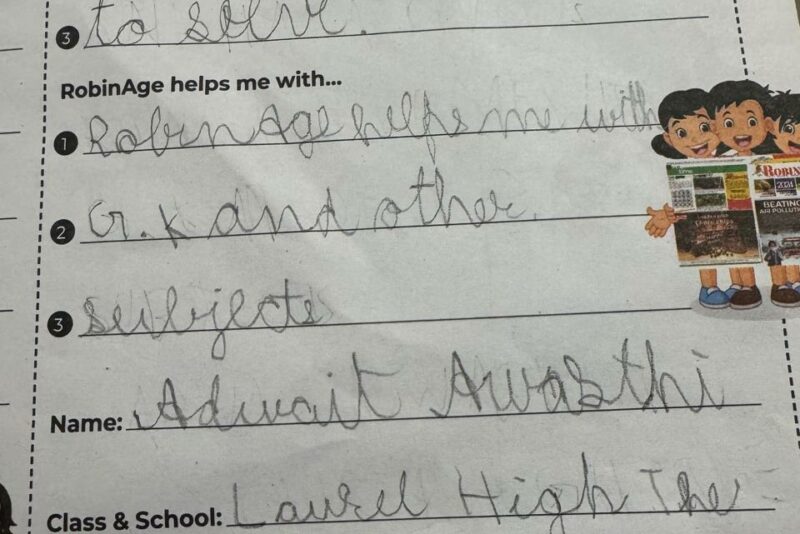 3 to solve.
RobinAge helps me with...
1 RobinAge helps me with
2 G.K and other
3 subjects
Name: Adwait Awasthi
Class & School: Laurel High The
ROBIN
2024
BEATING
AIR POLLUTI